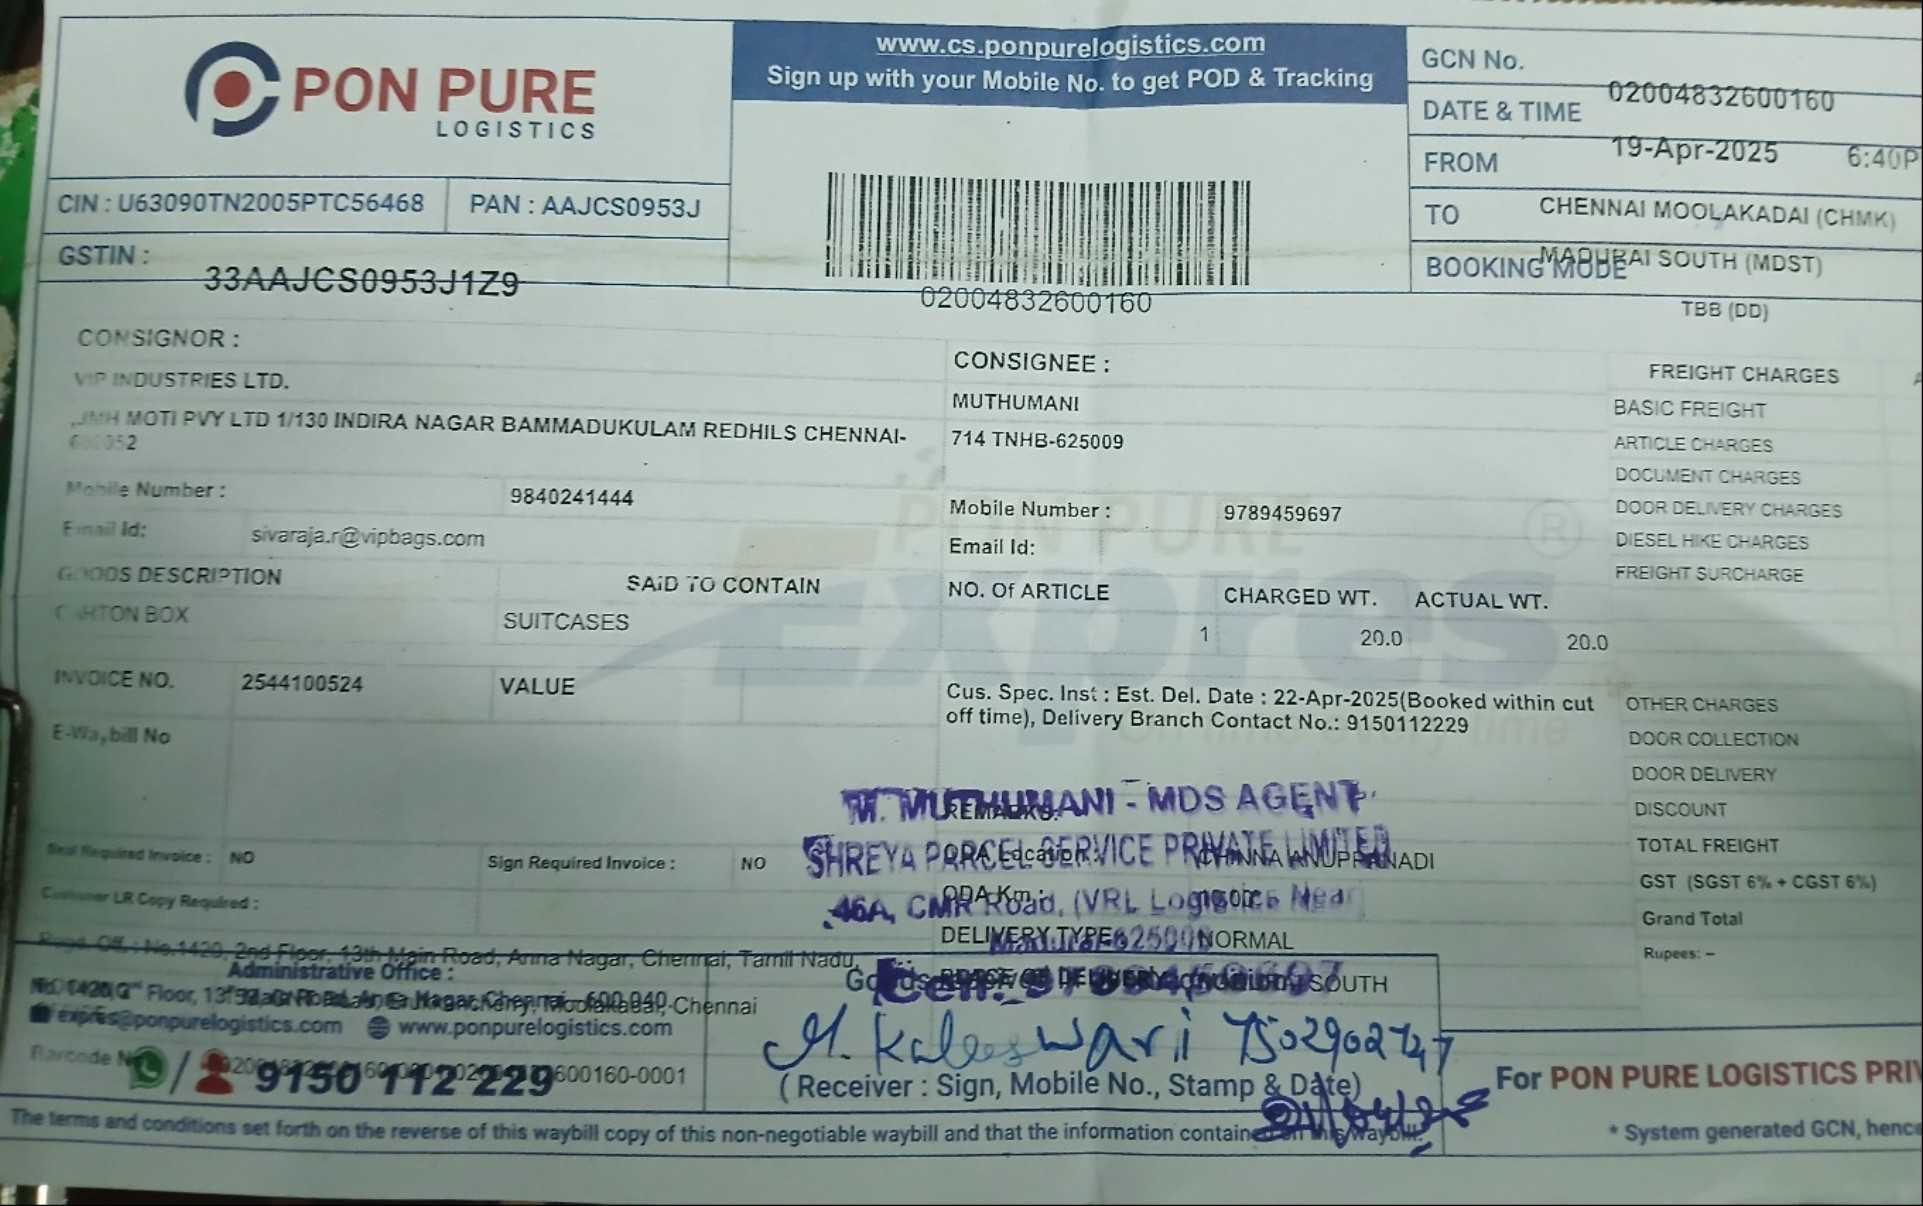 PON PURE
LOGISTICS
www.cs.ponpurelogistics.com
Sign up with your Mobile No. to get POD & Tracking
GCN No.
02004832600160
DATE & TIME
19-Apr-2025 6:40P
FROM
CHENNAI MOOLAKADAI (CHMK)
TO
MADURAI SOUTH (MDST)
BOOKING MODE
TBB (DD)
CIN : U63090TN2005PTC56468 PAN : AAJCS0953J
GSTIN :
33AAJCS0953J1Z9
02004832600160
CONSIGNOR :
VIP INDUSTRIES LTD.
MOTI PVY LTD 1/130 INDIRA NAGAR BAMMADUKULAM REDHILS CHENNAI-
Mobile Number : 9840241444
Email Id: sivaraja.r@vipbags.com
GOODS DESCRIPTION SAID TO CONTAIN
CARTON BOX SUITCASES
INVOICE NO. 2544100524 VALUE
E-Waybill No
Seal Required Invoice : NO Sign Required Invoice : NO
Customer LR Copy Required :
CONSIGNEE :
MUTHUMANI
714 TNHB-625009
Mobile Number : 9789459697
Email Id:
NO. Of ARTICLE CHARGED WT. ACTUAL WT.
1 20.0 20.0
Cus. Spec. Inst : Est. Del. Date : 22-Apr-2025(Booked within cut
off time), Delivery Branch Contact No.: 9150112229
FREIGHT CHARGES
BASIC FREIGHT
ARTICLE CHARGES
DOCUMENT CHARGES
DOOR DELIVERY CHARGES
DIESEL HIKE CHARGES
FREIGHT SURCHARGE
OTHER CHARGES
DOOR COLLECTION
DOOR DELIVERY
DISCOUNT
TOTAL FREIGHT
GST (SGST 6% + CGST 6%)
Grand Total
Rupees: –
PON PURE
Expres ®
M. MUTHUMANI - MDS AGENT
REMARKS:
SHREYA PARCEL SERVICE PRIVATE LIMITED
ODA Location :
46A, CMR Road, (VRL Logistics Near)
ODA Km :
DELIVERY TYPE NORMAL
SOUTH
Regd. Off. : No.1420, 2nd Floor, 13th Main Road, Anna Nagar, Chennai, Tamil Nadu,
Administrative Office :
expres@ponpurelogistics.com www.ponpurelogistics.com
9150 112 229
M. Kaleeswari 7502902747
( Receiver : Sign, Mobile No., Stamp & Date)
For PON PURE LOGISTICS PRIV
The terms and conditions set forth on the reverse of this waybill copy of this non-negotiable waybill and that the information contained on this waybill.
* System generated GCN, hence